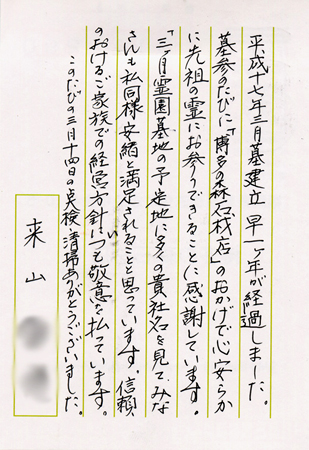 平成十七年三月墓建立 早一ヶ年が経過しました。
墓参のたびに「博多の森石材店」のおかげで心安らか
に先祖の霊にお参りできることに感謝しています。
「三ヶ月霊園墓地の予定地に多くの貴社名を見て、みな
さんも私同様安緒と満足されることと思っています。信頼
のおけるご家族での経営方針にいつも敬意を払っています。
このたびの三月十四日の点検、清掃ありがとうございました。
来山